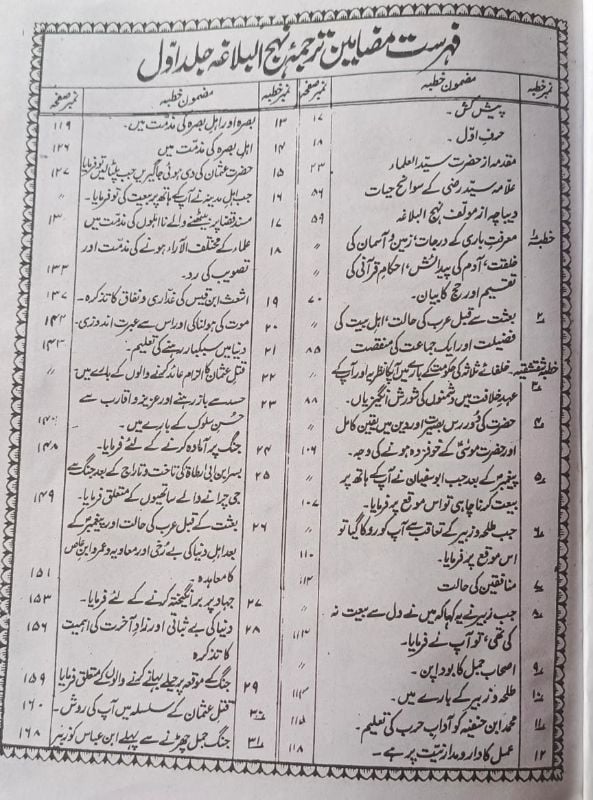 فہرست مضامین ترجمۂ نہج البلاغہ جلد اوّل
نمبر خطبہ مضمون خطبہ نمبر صفحہ
پیش کش۔ ۱۷
حرفِ اوّل۔ ۱۸
مقدمہ از حضرت سیّد العلماء ۲۳
علّامہ سیّد رضی کے سوانح حیات ۵۶
دیباچہ از مولف نہج البلاغہ ۵۹
خطبہ۱ معرفتِ باری کے درجات، زمین و آسمان کی 〃
خلقت، آدم کی پیدائش، احکامِ قرآنی کی 〃
تقسیم اور حج کا بیان۔ ۷۰
۲ بعثت سے قبل عرب کی حالت، اہل بیت کی 〃
فضیلت اور ایک جماعت کی منقصت ۸۵
خطبہ شقشقیہ۔ خلفائے ثلاثہ کی حکومت کے بارے میں آپ کا نظریہ اور آپ کے
۳ عہدِ خلافت میں دشمنوں کی شورش انگیزیاں۔ ۸۸
۴ حضرت کی دُور رس بصیرت اور دین میں یقین کامل 〃
اور حضرت موسیٰؑ کے خوفزدہ ہونے کی وجہ۔ ۱۰۶
۵ پیغمبرؐ کے بعد جب ابوسفیان نے آپ کے ہاتھ پر 〃
بیعت کرنا چاہی تو اس موقع پر فرمایا۔ ۱۰۷
۶ جب طلحہ و زبیر کے تعاقب سے آپ کو روکا گیا تو 〃
اس موقع پر فرمایا۔ ۱۱۰
۷ منافقین کی حالت ۱۱۲
۸ جب زبیر نے یہ کہا کہ میں نے دل سے بیعت نہ 〃
کی تھی، تو آپ نے فرمایا۔ ۱۱۳
۹ اصحاب جمل کا بودا پن۔ 〃
۱۰ طلحہ و زبیر کے بارے میں۔ ۱۱۴
۱۱ محمد ابن حنفیہ کو آداب حرب کی تعلیم۔ ۱۱۵
۱۲ عمل کا دارومدار نیّت پر ہے۔ ۱۱۸
نمبر خطبہ مضمون خطبہ نمبر صفحہ
۱۳ بصرہ اور اہل بصرہ کی مذمّت میں۔ ۱۱۹
۱۴ اہل بصرہ کی مذمّت میں ۱۲۶
۱۵ حضرت عثمان کی دی ہوئی جاگیریں جب پلٹا لیں تو فرمایا ۱۲۷
۱۶ جب اہل مدینہ نے آپ کے ہاتھ پر بیعت کی تو فرمایا۔ 〃
۱۷ مسند قضا پر بیٹھنے والے نااہلوں کی مذمّت میں ۱۳۰
۱۸ علماء کے مختلف الآراء ہونے کی مذمّت اور
تصویب کی رد۔ ۱۳۳
۱۹ اشعث ابن قیس کی غدّاری و نفاق کا تذکرہ۔ ۱۳۷
۲۰ موت کی ہولناکی اور اس سے عبرت اندوزی۔ ۱۴۲
۲۱ دنیا میں سبکبار رہنے کی تعلیم۔ ۱۴۳
۲۲ قتل عثمان کا الزام عائد کرنے والوں کے بارے میں 〃
۲۳ حسد سے باز رہنے اور عزیز و اقارب سے
حسنِ سلوک کے بارے میں۔
۲۴ جنگ پر آمادہ کرنے کے لئے فرمایا۔ ۱۴۸
۲۵ بسر ابن ابی ارطاۃ کی تاخت و تاراج کے بعد جنگ سے
جی چرانے والے ساتھیوں کے متعلق فرمایا۔ ۱۴۹
۲۶ بعثت کے قبل عرب کی حالت اور پیغمبرؐ کے
بعد اہل دنیا کی بے رُخی اور معاویہ و عمرو ابن عاص
کا معاہدہ ۱۵۱
۲۷ جہاد پر برانگیختہ کرنے کے لئے فرمایا۔ ۱۵۳
۲۸ دنیا کی بے ثباتی اور زادِ آخرت کی اہمیت ۱۵۶
کا تذکرہ
۲۹ جنگ کے موقعہ پر حیلے بہانے کرنے والوں کے متعلق فرمایا ۱۵۹
۳۰ قتل عثمان کے سلسلہ میں آپ کی روش۔ ۱۶۰
۳۱ جنگِ جمل چھڑنے سے پہلے ابن عباس کو زبیر ۱۶۸